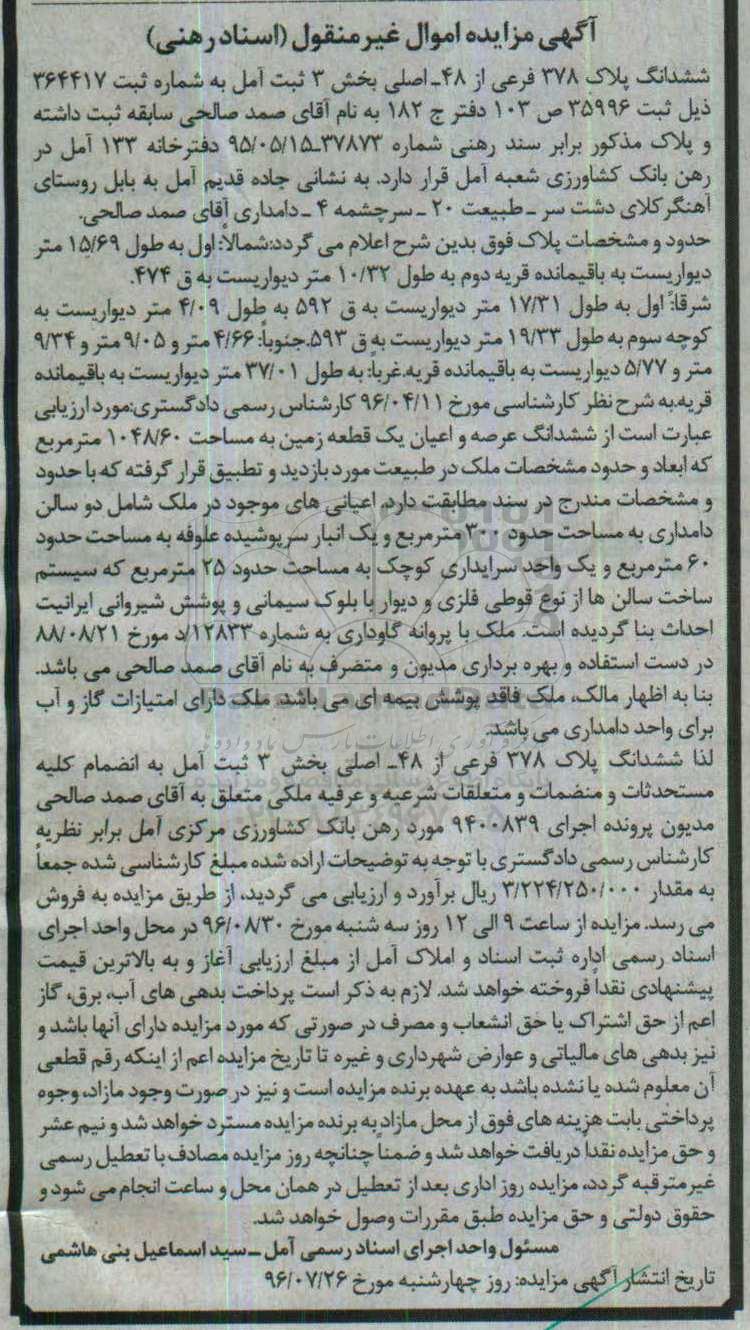 آگهی مزایده اموال غیرمنقول (اسناد رهنی)
ششدانگ پلاک ۳۷۸ فرعی از ۴۸ـ اصلی بخش ۳ ثبت آمل به شماره ثبت ۳۶۴۴۱۷
ذیل ثبت ۳۵۹۹۶ ص ۱۰۳ دفتر ج ۱۸۲ به نام آقای صمد صالحی سابقه ثبت داشته
و پلاک مذکور برابر سند رهنی شماره ۳۷۸۷۳ـ۹۵/۰۵/۱۵ دفترخانه ۱۳۳ آمل در
رهن بانک کشاورزی شعبه آمل قرار دارد. به نشانی جاده قدیم آمل به بابل روستای
آهنگرکلای دشت سر ـ طبیعت ۲۰ ـ سرچشمه ۴ ـ دامداری آقای صمد صالحی.
حدود و مشخصات پلاک فوق بدین شرح اعلام می گردد:شمالاً: اول به طول ۱۵/۶۹ متر
دیواریست به باقیمانده قریه دوم به طول ۱۰/۳۲ متر دیواریست به ق ۴۷۴.
شرقاً: اول به طول ۱۷/۳۱ متر دیواریست به ق ۵۹۲ به طول ۴/۰۹ متر دیواریست به
کوچه سوم به طول ۱۹/۳۳ متر دیواریست به ق ۵۹۳.جنوباً: ۴/۶۶ متر و ۹/۰۵ متر و ۹/۳۴
متر و ۵/۷۷ دیواریست به باقیمانده قریه.غرباً: به طول ۳۷/۰۱ متر دیواریست به باقیمانده
قریه.به شرح نظر کارشناسی مورخ ۹۶/۰۴/۱۱ کارشناس رسمی دادگستری:مورد ارزیابی
عبارت است از ششدانگ عرصه و اعیان یک قطعه زمین به مساحت ۱۰۴۸/۶۰ مترمربع
که ابعاد و حدود مشخصات ملک در طبیعت مورد بازدید و تطبیق قرار گرفته که با حدود
و مشخصات مندرج در سند مطابقت دارد. اعیانی های موجود در ملک شامل دو سالن
دامداری به مساحت حدود ۳۰۰ مترمربع و یک انبار سرپوشیده علوفه به مساحت حدود
۶۰ مترمربع و یک واحد سرایداری کوچک به مساحت حدود ۲۵ مترمربع که سیستم
ساخت سالن ها از نوع قوطی فلزی و دیوار با بلوک سیمانی و پوشش شیروانی ایرانیت
احداث بنا گردیده است. ملک با پروانه گاوداری به شماره ۱۲۸۳۳/د مورخ ۸۸/۰۸/۲۱
در دست استفاده و بهره برداری مدیون و متصرف به نام آقای صمد صالحی می باشد.
بنا به اظهار مالک، ملک فاقد پوشش بیمه ای می باشد. ملک دارای امتیازات گاز و آب
برای واحد دامداری می باشد.
لذا ششدانگ پلاک ۳۷۸ فرعی از ۴۸ـ اصلی بخش ۳ ثبت آمل به انضمام کلیه
مستحدثات و منضمات و متعلقات شرعیه و عرفیه ملکی متعلق به آقای صمد صالحی
مدیون پرونده اجرای ۹۴۰۰۸۳۹ مورد رهن بانک کشاورزی مرکزی آمل برابر نظریه
کارشناس رسمی دادگستری با توجه به توضیحات اراده شده مبلغ کارشناسی شده جمعاً
به مقدار ۳/۲۲۴/۲۵۰/۰۰۰ ریال برآورد و ارزیابی می گردید، از طریق مزایده به فروش
می رسد. مزایده از ساعت ۹ الی ۱۲ روز سه شنبه مورخ ۹۶/۰۸/۳۰ در محل واحد اجرای
اسناد رسمی اداره ثبت اسناد و املاک آمل از مبلغ ارزیابی آغاز و به بالاترین قیمت
پیشنهادی نقداً فروخته خواهد شد. لازم به ذکر است پرداخت بدهی های آب، برق، گاز
اعم از حق اشتراک یا حق انشعاب و مصرف در صورتی که مورد مزایده دارای آنها باشد و
نیز بدهی های مالیاتی و عوارض شهرداری و غیره تا تاریخ مزایده اعم از اینکه رقم قطعی
آن معلوم شده یا نشده باشد به عهده برنده مزایده است و نیز در صورت وجود مازاد، وجوه
پرداختی بابت هزینه های فوق از محل مازاد به برنده مزایده مسترد خواهد شد و نیم عشر
و حق مزایده نقداً دریافت خواهد شد و ضمناً چنانچه روز مزایده مصادف با تعطیل رسمی
غیرمترقبه گردد، مزایده روز اداری بعد از تعطیل در همان محل و ساعت انجام می شود و
حقوق دولتی و حق مزایده طبق مقررات وصول خواهد شد.
مسئول واحد اجرای اسناد رسمی آمل ـ سید اسماعیل بنی هاشمی
تاریخ انتشار آگهی مزایده: روز چهارشنبه مورخ ۹۶/۰۷/۲۶